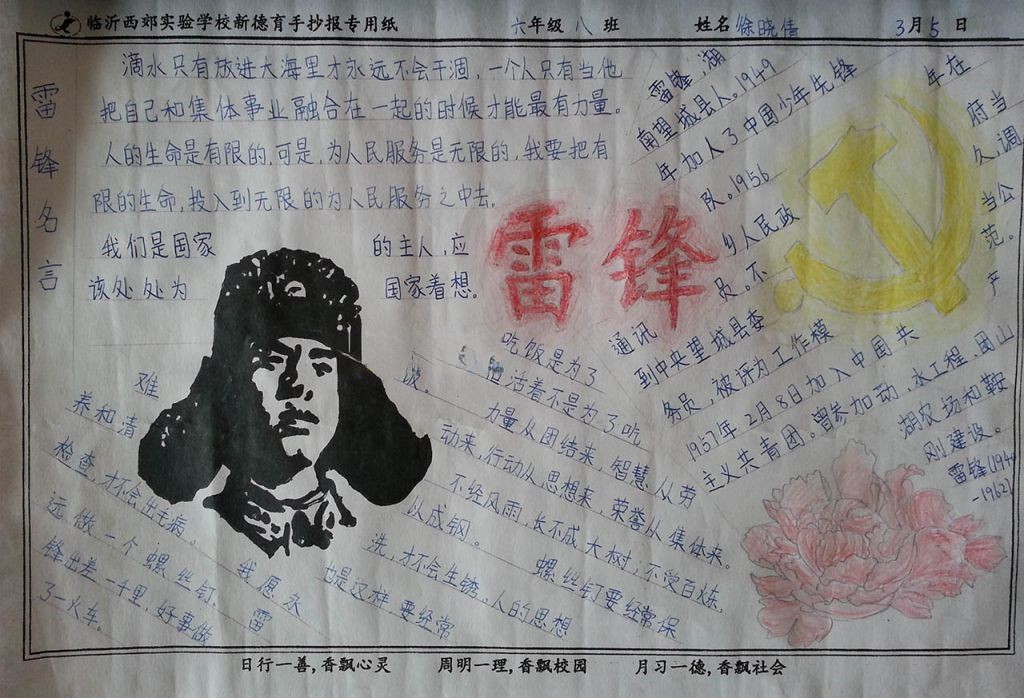 临沂西郊实验学校新德育手抄报专用纸 六年级 八 班 姓名 徐晓倩 3月5日
雷锋名言
滴水只有放进大海里才永远不会干涸，一个人只有当他
把自己和集体事业融合在一起的时候才能最有力量。
人的生命是有限的，可是，为人民服务是无限的，我要把有
限的生命，投入到无限的为人民服务之中去。
我们是国家 的主人，应
该处处为 国家着想。
雷锋
雷锋，湖
南望城县人。1949 年在
年加入了中国少年先锋
队。1956
府当
乡人民政
久，调
员。不
当公
通讯
范。
到中央望城县委
务员，被评为工作模
1957年2月8日加入中国共 产
主义共青团。曾参加动，水工程、团山
湖农场和鞍
刚建设。
雷锋(1940
-1962)
吃饭是为了
活着不是为了吃
饭。
力量从团结来，智慧从劳
动来，行动从思想来，荣誉从集体来。
不经风雨，长不成大树；不受百炼，
难以成钢。
螺丝钉要经常保
养和清洗，才不会生锈。人的思想
也是这样，要经常
检查，才不会出毛病。
我愿永
远做一个螺丝钉。
雷
锋出差一千里，好事做
了一火车。
日行一善，香飘心灵 周明一理，香飘校园 月习一德，香飘社会